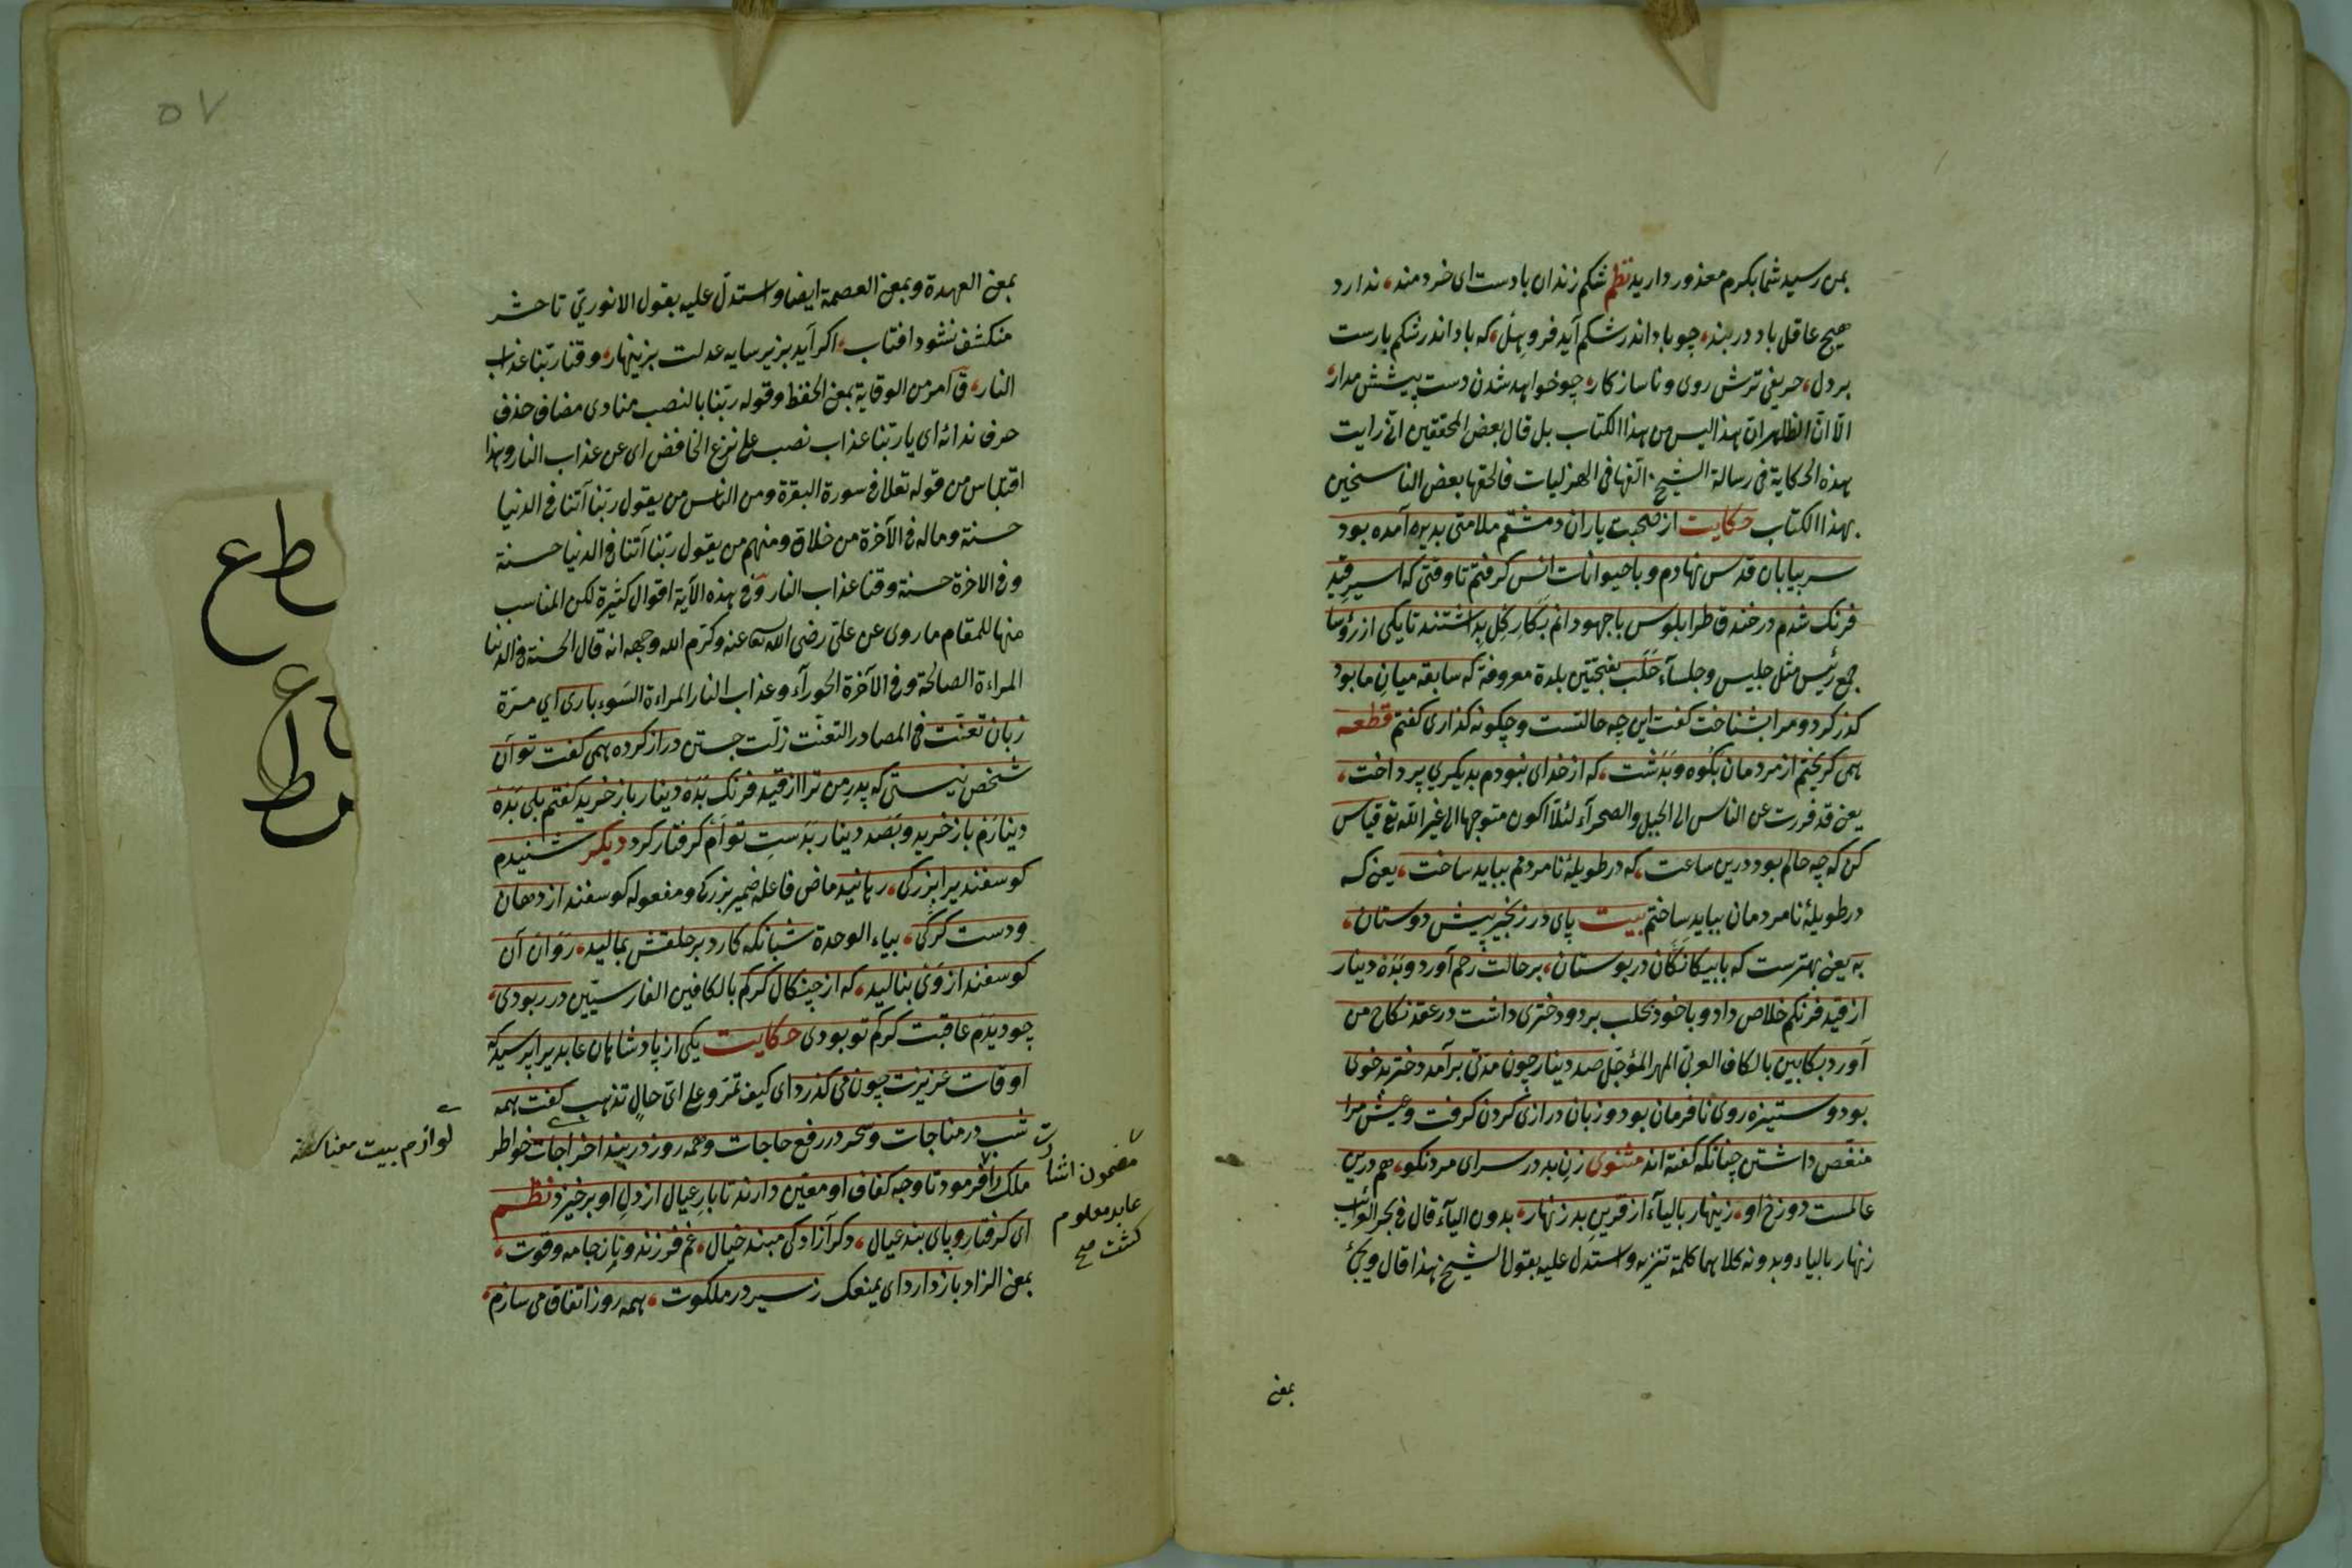 بمن رسید شما بکرم معذور دارید نظم شکم زندان بادست ای خردمند، ندارد
هیچ عاقل باد در بند، چو باد اندر شکم آید فرو هل، که باد اندر شکم بارست
بر دل، حریفی ترش روی و ناسازکار، چو خواهد شدن دست پیشش مدار،
الّا انّ الظاهر انّ هذا لیس من هذا الکتاب بل قال بعض المحققین انّی رایت
هذه الحکایة فی رسالة الشیخ الّفها فی الهزلیات فالحقها بعض الناسخین
بهذا الکتاب حکایت از صحبت یاران دمشقم ملامتی بدیره آمده بود
سر بیابان قدس نهادم و با حیوانات انس کرفتم تا وقتی که اسیر قید
فرنک شدم در خندق طرابلوس با جهودانم بکار کل بداشتند تا یکی از رؤسا
جمع رئیس مثل جلیس وجلسآء حلب بفتحتین بلدة معروفة که سابقه میان ما بود
کذر کرد و مرا بشناخت کفت این چه حالتست و چکونه کذاری کفتم قطعه
همی کریختم از مردمان بکوه و بدشت، که از خدای نبودم بدیکری پرداخت،
یعنی قد فررت عن الناس الی الجبل والصحرآء لئلّا اکون متوجها الی غیر اللّه تع قیاس
کن که چه حالم بود درین ساعت، که در طویلهٔ نامردمم بباید ساخت، یعنی که
در طویلهٔ نامردمان بباید ساختم بیت پای در زنجیر پیش دوستان،
به یعنی بهترست که با بیکانکان در بوستان، بر حالت رحم آورد و بده دینار
از قید فرنکم خلاص داد و با خود بحلب برد و دختری داشت در عقد نکاح من
آورد بکابین بالکاف العربی المهر المؤجّل صد دینار چون مدتی برآمد دختر بدخوی
بود و ستیزه روی نافرمان بود و زبان درازی کردن کرفت و عیش مرا
منغّص داشتن چنانکه کفته اند مثنوی زن بد در سرای مرد نکو، هم درین
عالمست دوزخ او، زینهار بالیآء از قرین بد زنهار، بدون الیآء قال فی بحر الغرائب
زنهار بالیاء وبدونه کلاهما کلمة تنزیه واستدل علیه بقول الشیخ هذا قال ویجئ
بمعنی
بمعنی العهدة وبمعنی العصمة ایضا واستدلّ علیه بقول الانوری تا حشر
منکشف نشود افتاب، اکر آید بزیر سایه عدلت بزینهار، وقنا ربّنا عذاب
النار، ق امر من الوقایة بمعنی الحفظ وقوله ربّنا بالنصب منادی مضاف حذف
حرف ندائه ای یا ربّنا عذاب نصب علی نزع الخافض ای عن عذاب النار وهذا
اقتباس من قوله تعالی فی سورة البقرة ومن الناس من یقول ربّنا آتنا فی الدنیا
حسنة وماله فی الآخرة من خلاق ومنهم من یقول ربّنا آتنا فی الدنیا حسنة
وفی الاخرة حسنة وقنا عذاب النار وفی هذه الآیة اقوال کثیرة لکن المناسب
منها للمقام ما روی عن علیّ رضی اللّه تع عنه وکرّم اللّه وجهه انه قال الحسنة فی الدنیا
المراءة الصالحة وفی الآخرة الحورآء وعذاب النار المراءة السّوء باری ای مرّة
زبان تعنّت فی المصادر التعنّت زلّت جستن دراز کرده همی کفت تو آن
شخص نیستی که پدر من ترا از قید فرنک بده دینار باز خرید کفتم بلی بده
دینارم باز خرید و بصد دینار بدست توام کرفتار کرد دیکر شنیدم
کوسفندیرا بزرکی، رهانید ماض فاعله ضمیر بزرکی ومفعوله کوسفند از دهان
ودست کرکی، بیاء الوحدة شبانکه کارد بر حلقش بمالید، روان آن
کوسفند از وی بنالید، که از چنکال کرکم بالکافین الفارسیّین در ربودی،
چو دیدم عاقبت کرکم تو بودی حکایت یکی از پادشاهان عابدیرا پرسید که
اوقات عزیزت چون می کذرد ای کیف تمرّ وعلی ایّ حال تذهب کفت همه
شب در مناجات وسحر در رفع حاجات وهمه روز در بند اخراجات خواطر
ملک را فرمود تا وجه کفاف او معیّن دارند تا بار عیال از دل او برخیزد نظم
ای کرفتار و پای بند عیال، دکر آزادکی مبند خیال، غم فرزند و نان جامه وقوت،
بمعنی الزاد باز دارد ای یمنعک ز سیر در ملکوت، همه روز اتفاق می سازم،
مضمون اشارت
عابد معلوم
کشت صح
لوازم بیت معناسنه
۵۷